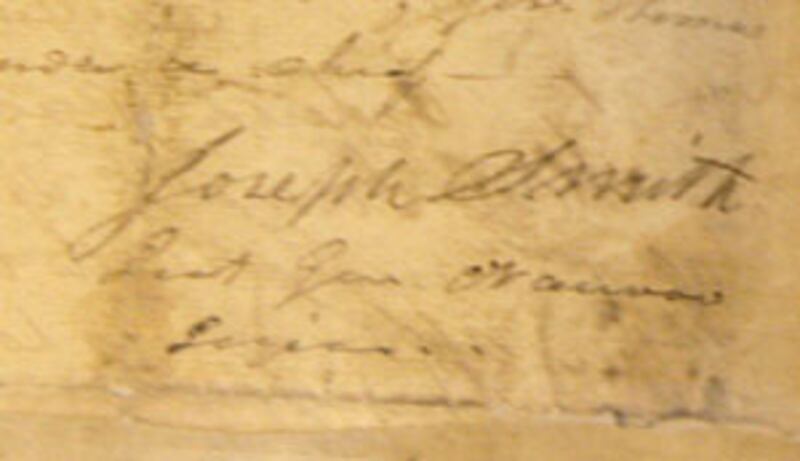 Thomas
in chief
Joseph Smith
Lieut Gen Nauvoo
Legion